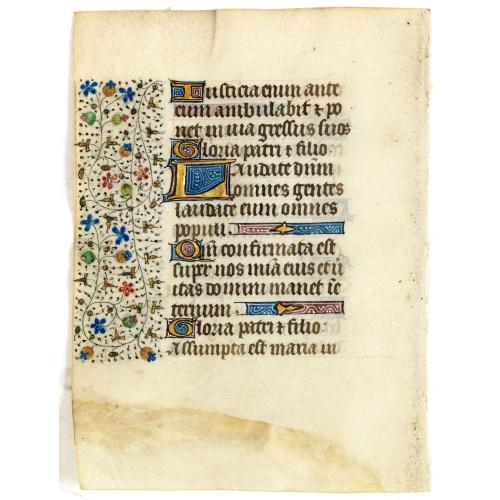 Iusticia enim ante
eum ambulabit & po
net in via gressus suos
Gloria patri & filio
Laudate dnm
omnes gentes
laudate eum omnes
populi
Qm confirmata est
super nos mia eius et ui
tas domini manet i e
ternum
Gloria patri & filio
Assumpta est maria in